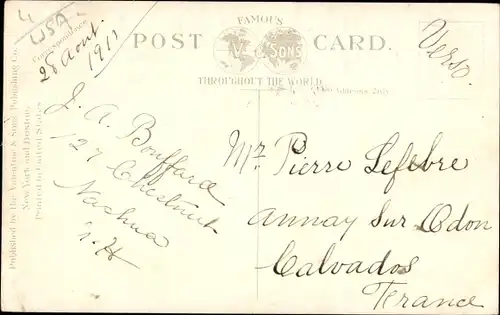 4
USA
Correspondence
28 Aout.
1911
FAMOUS
POST CARD.
VE & SONS
THROUGHOUT THE WORLD
Address Only
Verso.
Published by the Valentine & Sons Publishing Co.
New York and Boston.
Printed in United States
J. A. Bouffard
127 Chestnut
Nashua
N. H
Mr. Pierre Lefebre
annay Sur Odon
Calvados
France